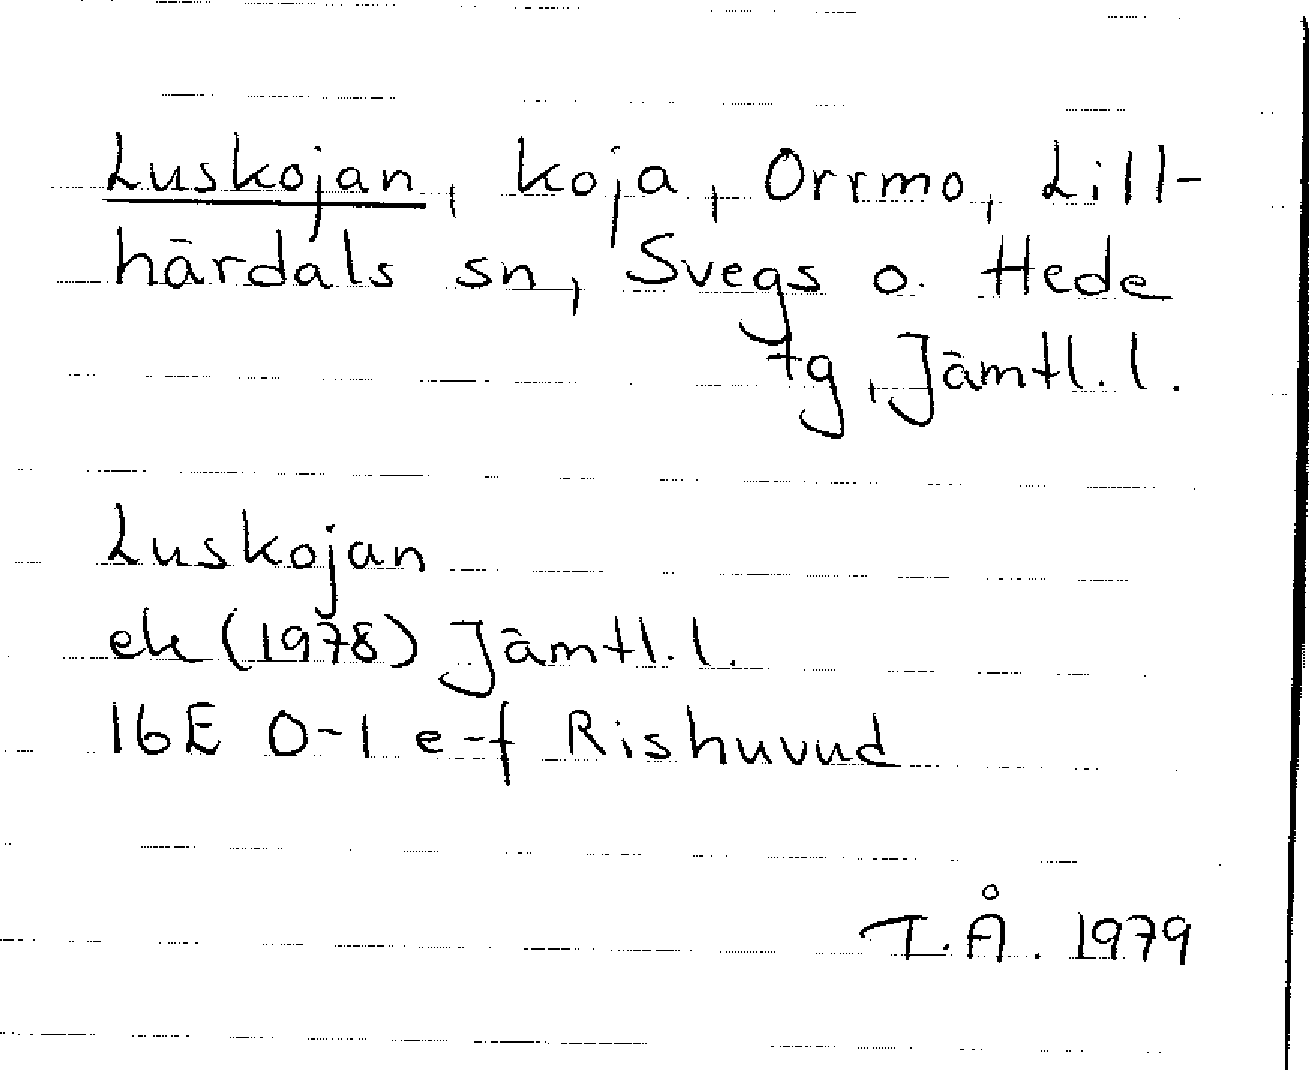 Luskojan, koja, Orrmo, Lill-
härdals sn, Svegs o. Hede
tg, Jämtl. l.
Luskojan
ek (1978) Jämtl. l.
16E 0-1 e-f Rishuvud
I.Å. 1979